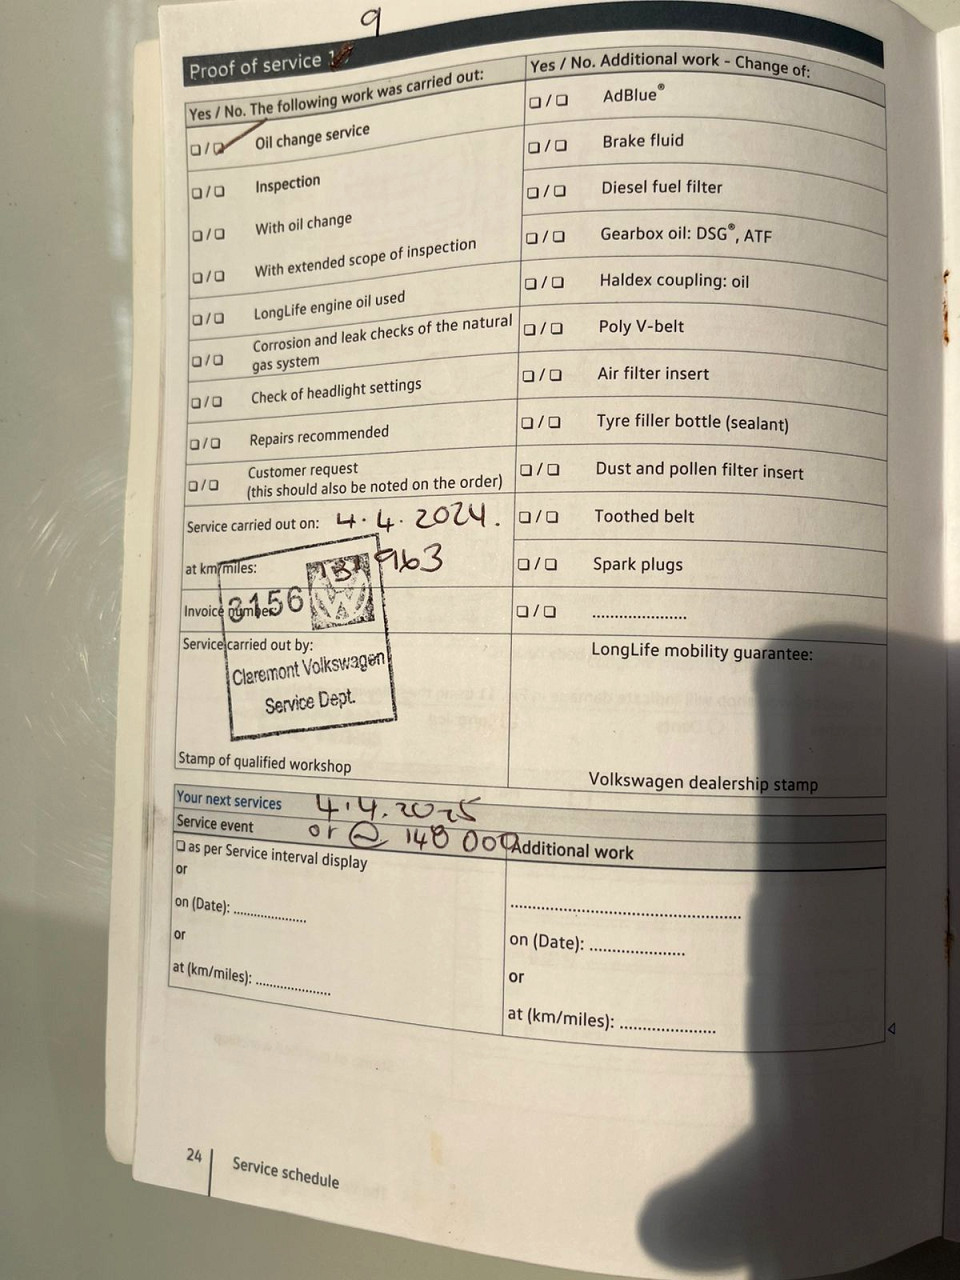 9
Proof of service 1
Yes / No. The following work was carried out:
Oil change service
Inspection
With oil change
With extended scope of inspection
LongLife engine oil used
Corrosion and leak checks of the natural
gas system
Check of headlight settings
Repairs recommended
Customer request
(this should also be noted on the order)
Service carried out on: 4.4.2024.
at km/miles: 963
Invoice number: 3156
Service carried out by:
Claremont Volkswagen
Service Dept.
Stamp of qualified workshop
Yes / No. Additional work - Change of:
AdBlue®
Brake fluid
Diesel fuel filter
Gearbox oil: DSG®, ATF
Haldex coupling: oil
Poly V-belt
Air filter insert
Tyre filler bottle (sealant)
Dust and pollen filter insert
Toothed belt
Spark plugs
LongLife mobility guarantee:
Volkswagen dealership stamp
Your next services 4.4.2025
Service event or @ 148 000
as per Service interval display
or
on (Date):
or
at (km/miles):
Additional work
on (Date):
or
at (km/miles):
24
Service schedule